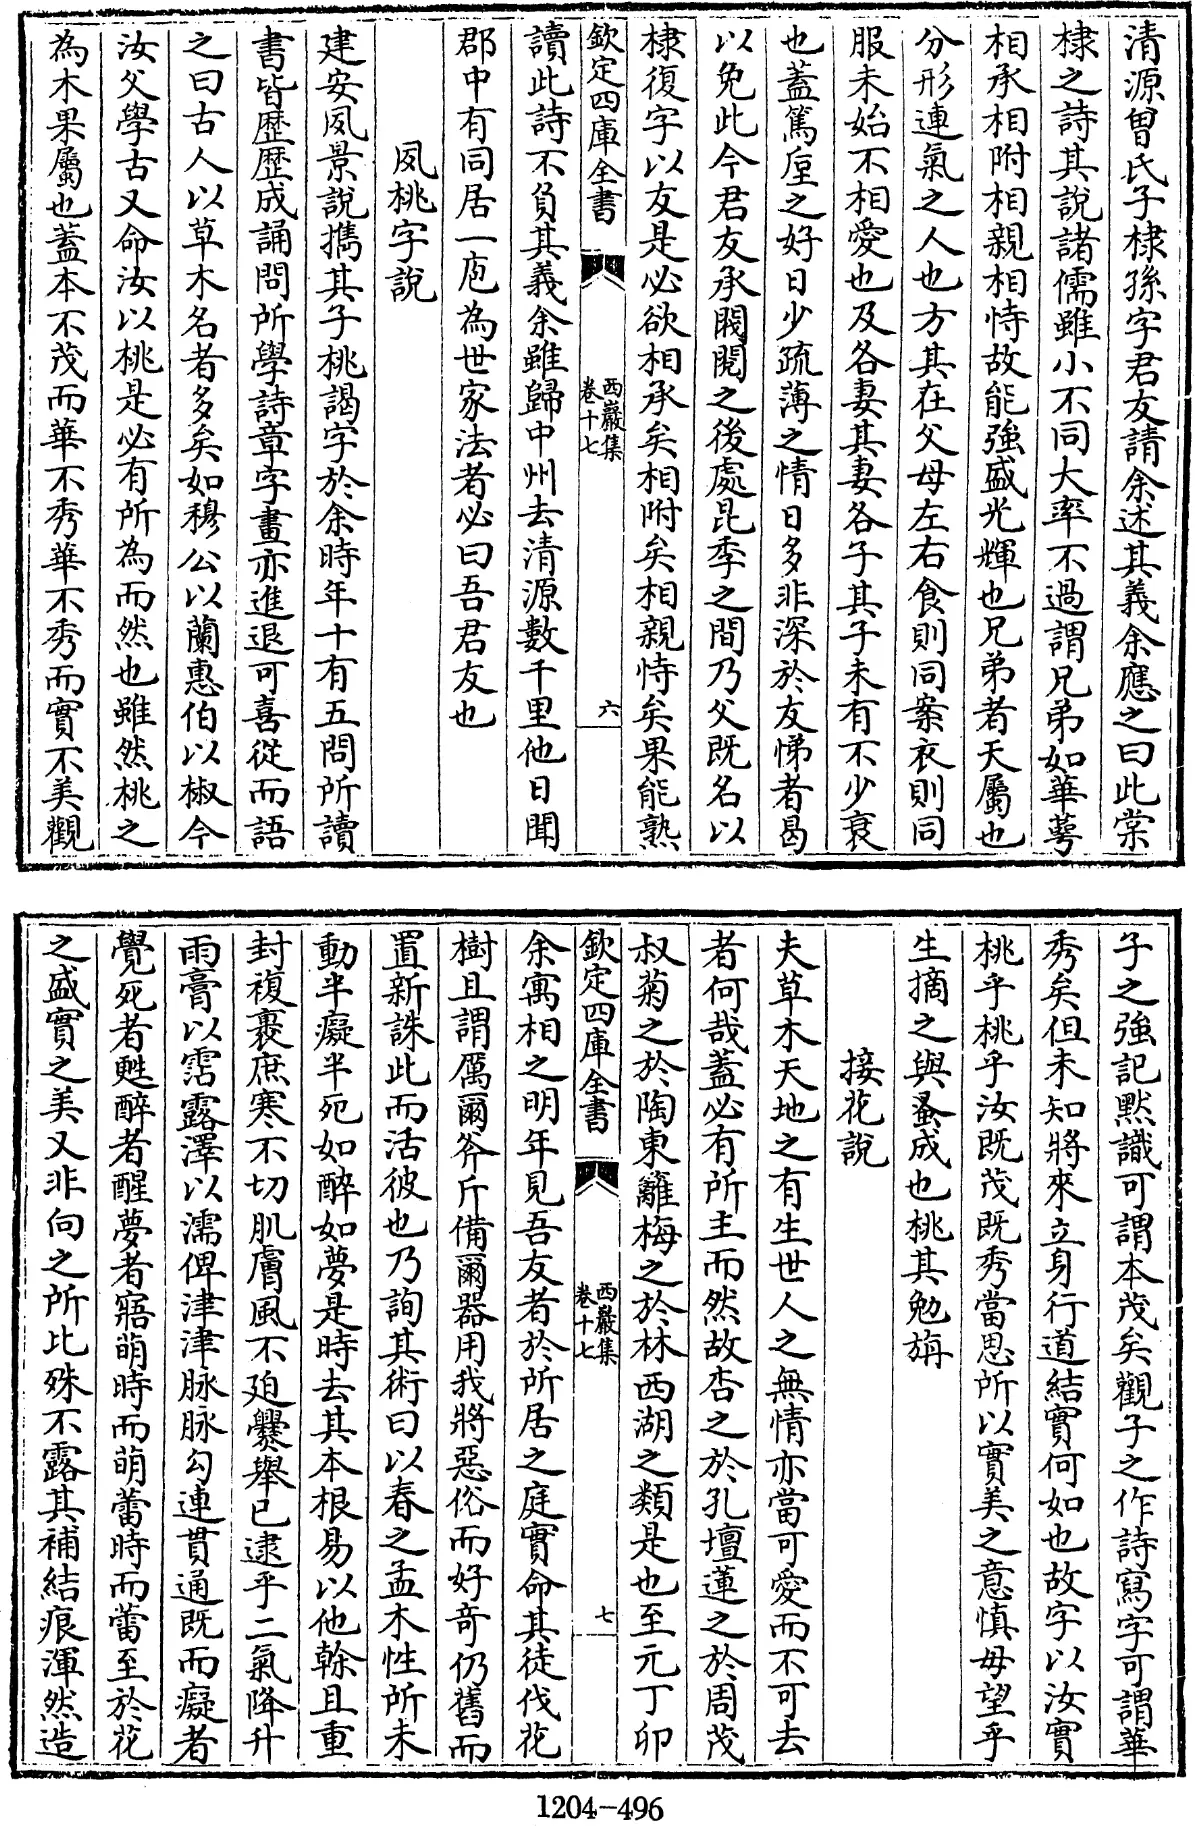 清源曾氏子棣孫字君友請余述其義余應之曰此棠
棣之詩其說諸儒雖小不同大率不過謂兄弟如華萼
相承相附相親相恃故能強盛光輝也兄弟者天屬也
分形連氣之人也方其在父母左右食則同案衣則同
服未始不相愛也及各妻其妻各子其子未有不少衰
也蓋篤厚之好日少疏薄之情日多非深於友悌者曷
以免此今君友承閥閱之後處昆季之間乃父既名以
棣復字以友是必欲相承矣相附矣相親恃矣果能熟
欽定四庫全書
西巖集
卷十七
六
讀此詩不負其義余雖歸中州去清源數千里他日聞
郡中有同居一庖為世家法者必曰吾君友也
夙桃字說
建安夙景說擕其子桃謁字於余時年十有五問所讀
書皆歷歷成誦問所學詩章字畫亦進退可喜從而語
之曰古人以草木名者多矣如穆公以蘭惠伯以椒今
汝父學古又命汝以桃是必有所為而然也雖然桃之
為木果屬也蓋本不茂而華不秀華不秀而實不美觀
子之強記默識可謂本茂矣觀子之作詩寫字可謂華
秀矣但未知將來立身行道結實何如也故字以汝實
桃乎桃乎汝既茂既秀當思所以實美之意慎毋望乎
生摘之與蚤成也桃其勉旃
接花說
夫草木天地之有生世人之無情亦當可愛而不可去
者何哉蓋必有所主而然故杏之於孔壇蓮之於周茂
叔菊之於陶東籬梅之於林西湖之類是也至元丁卯
欽定四庫全書
西巖集
卷十七
七
余寓相之明年見吾友者於所居之庭實命其徒伐花
樹且謂厲爾斧斤備爾器用我將惡俗而好竒仍舊而
置新誅此而活彼也乃詢其術曰以春之孟木性所未
動半癡半死如醉如夢是時去其本根易以他榦且重
封複裹庶寒不切肌膚風不廹爨舉已逮乎二氣降升
雨膏以霑露澤以濡俾津津脉脉勾連貫通既而癡者
覺死者甦醉者醒夢者寤萌時而萌蕾時而蕾至於花
之盛實之美又非向之所比殊不露其補結痕渾然造
1204-496